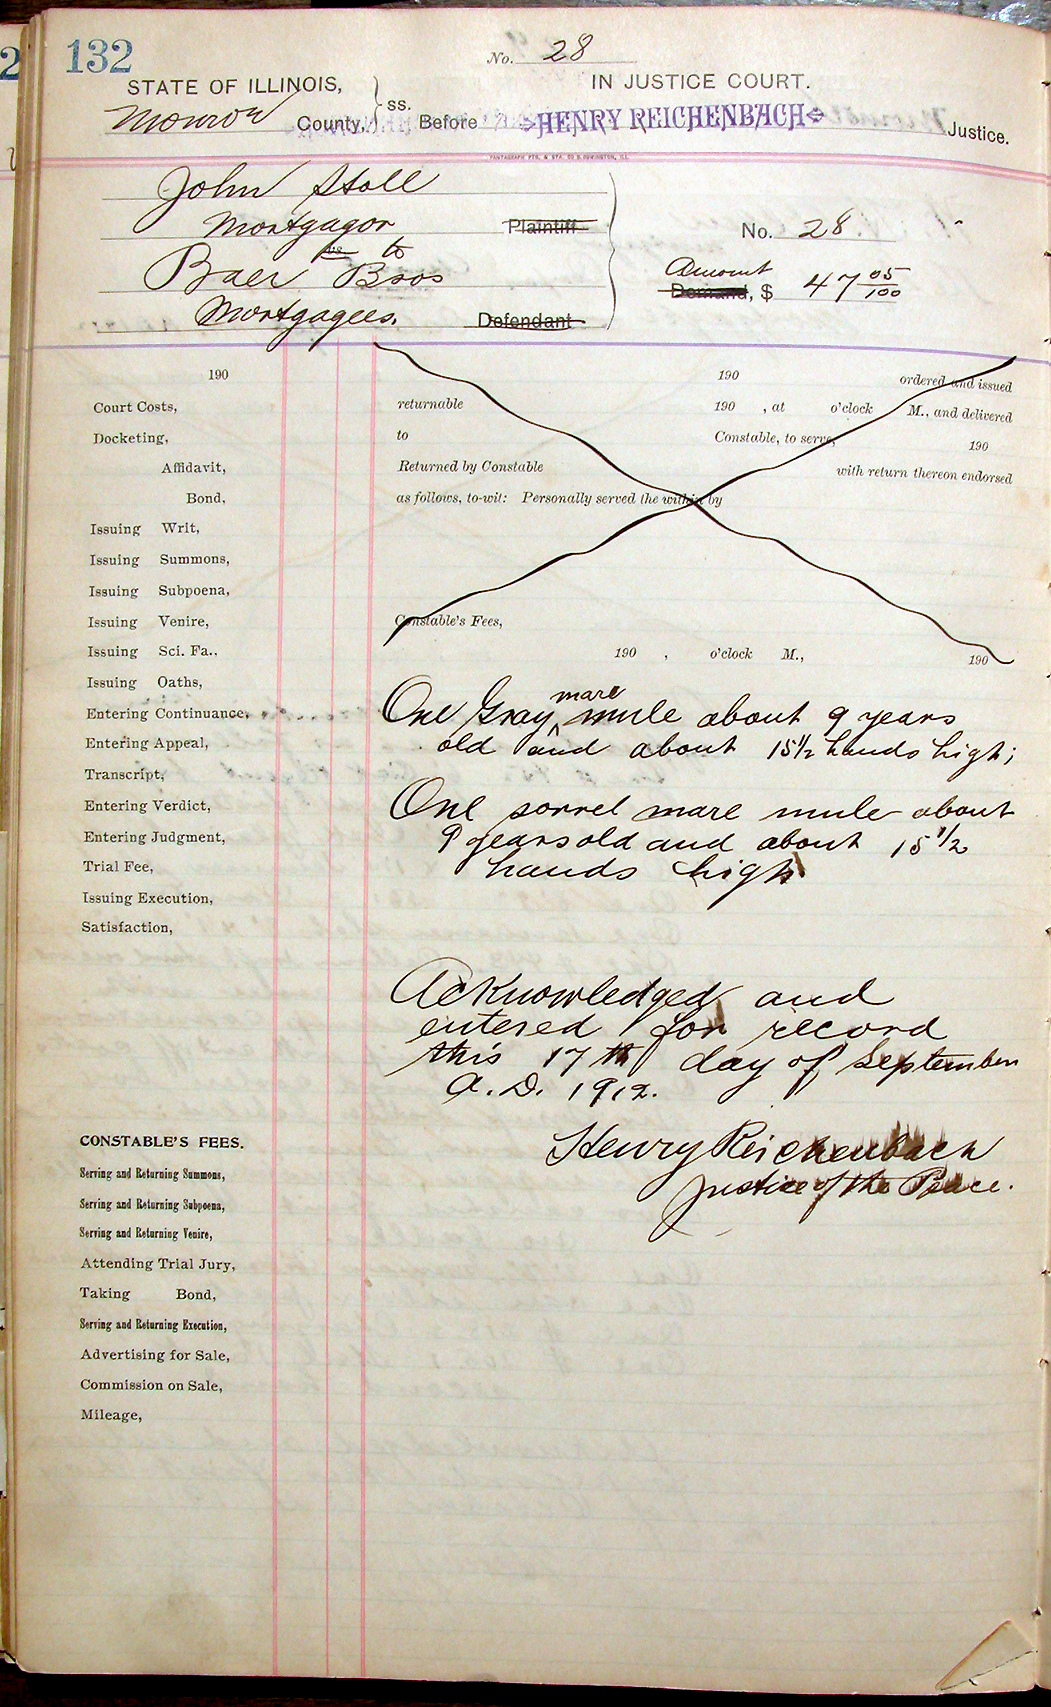 2
132
No. 28
STATE OF ILLINOIS,
IN JUSTICE COURT.
Monroe County, ss. Before HENRY REICHENBACH Justice.
PANTAGRAPH PTG. & STA. CO BLOOMINGTON, ILL.
John Stoll
Mortgagor Plaintiff
No. 28
vs to
Baer Bros
Amount
Demand, $ 47 05/100
Mortgagees. Defendant
190
190 ordered and issued
Court Costs,
returnable 190 , at o'clock M., and delivered
Docketing,
to Constable, to serve, 190
Affidavit,
Returned by Constable with return thereon endorsed
Bond,
as follows, to-wit: Personally served the within by
Issuing Writ,
Issuing Summons,
Issuing Subpoena,
Issuing Venire,
Constable's Fees,
Issuing Sci. Fa.,
190 , o'clock M., 190
Issuing Oaths,
mare
Entering Continuance,
One Gray ^ mule about 9 years
Entering Appeal,
old and about 15 1/2 hands high;
Transcript,
Entering Verdict,
One sorrel mare mule about
Entering Judgment,
9 years old and about 15 1/2
Trial Fee,
hands high
Issuing Execution,
Satisfaction,
Acknowledged and
entered for record
this 17th day of September
A. D. 1912.
CONSTABLE'S FEES.
Henry Reichenbach
Serving and Returning Summons,
Justice of the Peace.
Serving and Returning Subpoena,
Serving and Returning Venire,
Attending Trial Jury,
Taking Bond,
Serving and Returning Execution,
Advertising for Sale,
Commission on Sale,
Mileage,